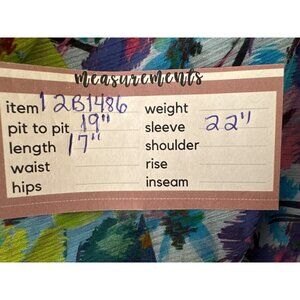 measurements
item 12B1486
pit to pit 19"
length 17"
waist
hips
weight
sleeve 22"
shoulder
rise
inseam